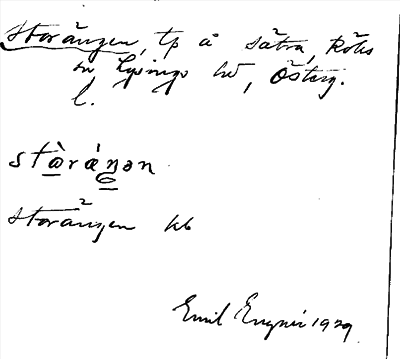 Storängen, tp å Sätra, Röks
sn, Lysings hd, Österg.
l.
stòráŋən
Storängen kb
Emil 1929